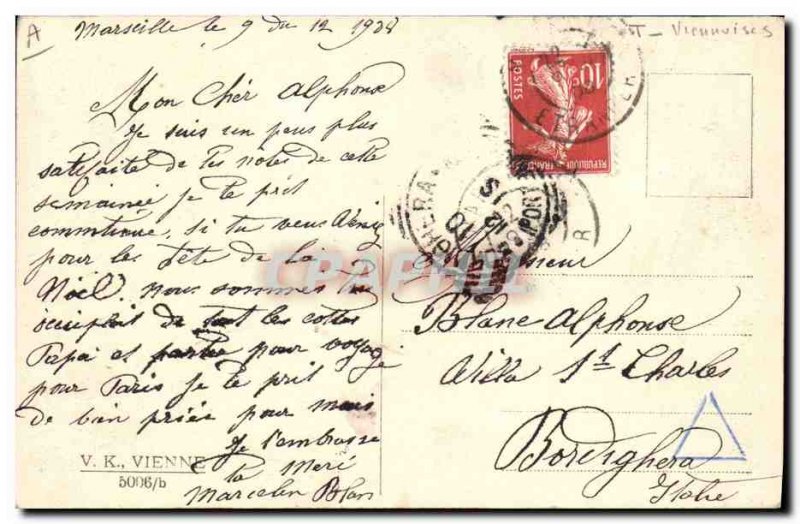 A
Marseille le 9 du 12 1908
T - Viennoises
Mon Chér Alphonse
Je suis un peus plus
satifaite de tes notes de cette
semainée je te prit
commtinué, si tu veus vénir
pour les féte de la
Noël. nous sommes
de tout les cottes
Papa et pour voyage
pour Paris Je te prit
de bien priée pour
Je t'embrasse
ta Meré
Marcelin Blan
V. K., VIENNE
5006/b
10c
POSTES
REPUBLIQUE FRANCAISE
ETRANGER
Monsieur
Blanc Alphonse
Villa St Charles
Bordighera
Italie
CPAPHIL